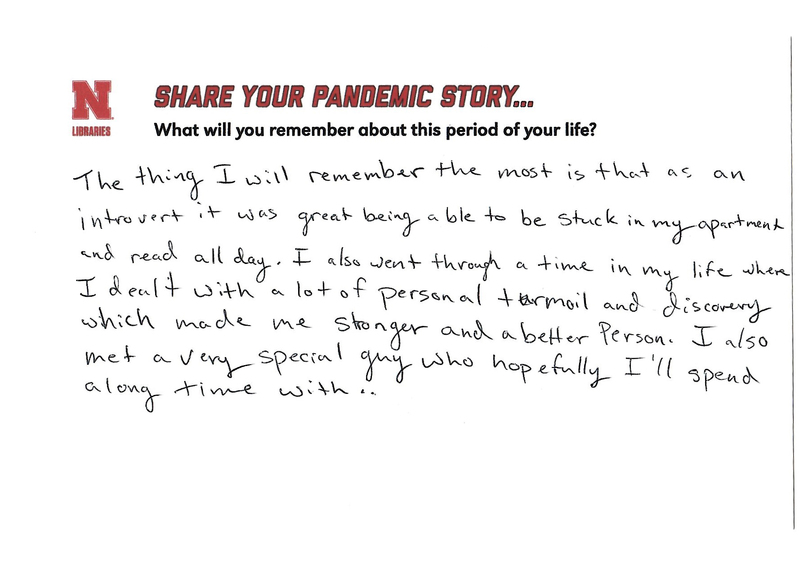 N
LIBRARIES
SHARE YOUR PANDEMIC STORY...
What will you remember about this period of your life?
The thing I will remember the most is that as an
introvert it was great being able to be stuck in my apartment
and read all day. I also went through a time in my life where
I dealt with a lot of personal turmoil and discovery
which made me stonger and a better Person. I also
met a very special guy who hopefully I'll spend
along time with..